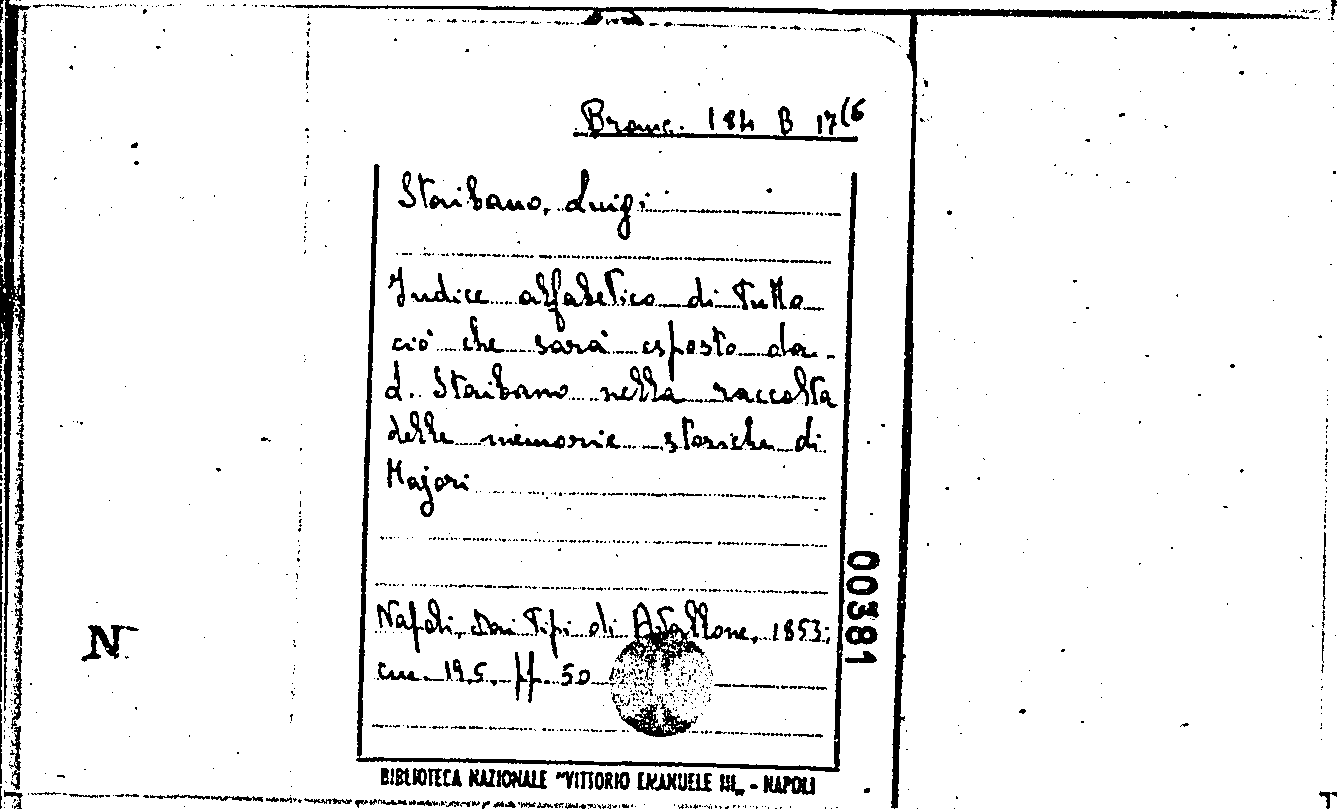 Branc. 184 B 17(6
Staibano, Luigi
Indice alfabetico di tutto
ciò che sarà esposto da
L. Staibano nella raccolta
delle memorie storiche di
Majori
Napoli, Dai Tipi di Avallone, 1853;
cm. 19,5, pp. 50
00381
N
BIBLIOTECA NAZIONALE "VITTORIO EMANUELE III„ - NAPOLI